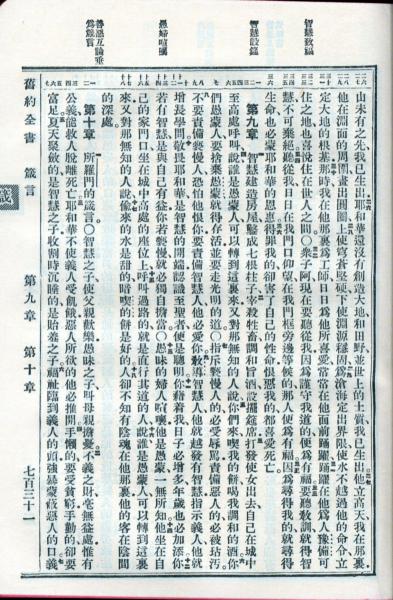 智慧致福
智慧設筵
愚婦喧囂
善惡互論垂
為箴言
山未有之先我已生出耶和華還沒有創造大地和田野並世上的土質我已生出他立高天我在那裏
他在淵面的周圍畫出圓圈上使穹蒼堅硬下使淵源穩固為滄海定出界限使水不越過他的命令立
定大地的根基那時我在他那裏為工師日日為他所喜愛常常在他面前踴躍踴躍在他為人豫備可
住之地也喜悅住在世人之間〇衆子阿現在要聽從我因為謹守我道的便為有福要聽教訓就得智
慧不可棄絕聽從我日日在我門口仰望在我門框旁邊等候的那人便為有福因為尋得我的就尋得
生命也必蒙耶和華的恩惠得罪我的卻害了自己的性命恨惡我的都喜愛死亡
第九章 智慧建造房屋鑿成七根柱子宰殺牲畜調和旨酒設擺筵席打發使女出去自己在城中
至高處呼叫說誰是愚蒙人可以轉到這裏來又對那無知的人說你們來喫我的餅喝我調和的酒你
們愚蒙人要捨棄愚蒙就得存活並要走光明的道〇指斥褻慢人的必受辱罵責備惡人的必被玷污
不要責備褻慢人恐怕他恨你要責備智慧人他必愛你教導智慧人他就越發有智慧指示義人他就
增長學問敬畏耶和華是智慧的開端認識至聖者便是聰明你藉着我日子必增多年歲也必加添你
若有智慧是與自己有益你若褻慢就必獨自擔當〇愚昧的婦人喧嚷他是愚蒙一無所知他坐在自
己的家門口坐在城中高處的座位上呼叫過路的就是直行其道的人說誰是愚蒙人可以轉到這裏
來又對那無知的人說偷來的水是甜的暗喫的餅是好的人卻不知有陰魂在他那裏他的客在陰間
的深處
第十章 所羅門的箴言〇智慧之子使父親歡樂愚昧之子叫母親擔憂不義之財毫無益處惟有
公義能救人脫離死亡耶和華不使義人受飢餓惡人所欲的他必推開手懶的要受貧窮手勤的卻要
富足夏天聚斂的是智慧之子收割時沉睡的是貽羞之子福祉臨到義人的頭強暴蒙蔽惡人的口義
舊約全書 箴言 第九章 第十章 七百三十一
箴